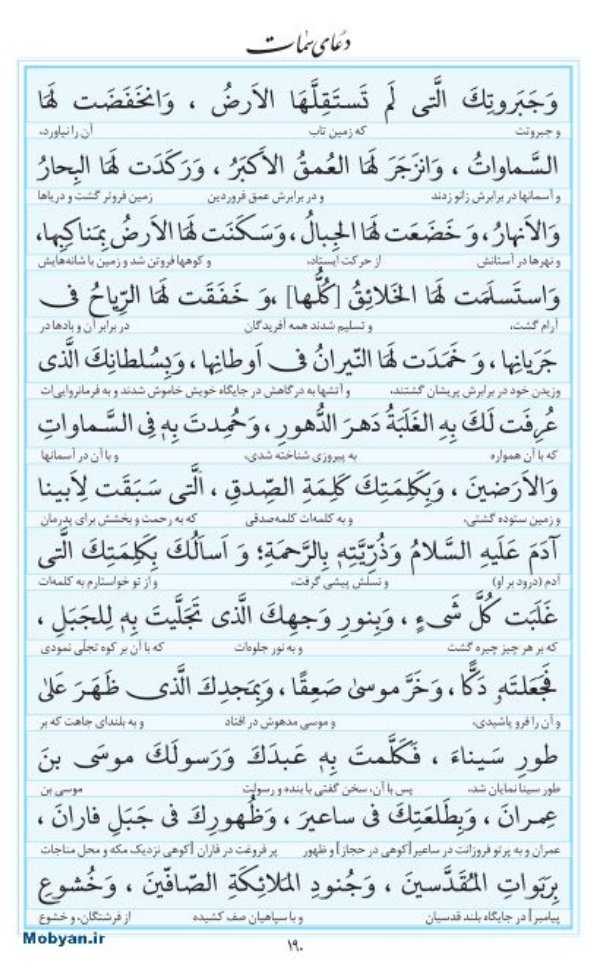 دعای سمات
وَجَبَروتِكَ الَّتی لَم تَستَقِلَّهَا الاَرضُ ، وَانخَفَضَت لَهَا
و جبروتت که زمین تاب آن را نیاورد،
السَّماواتُ ، وَانزَجَرَ لَهَا العُمقُ الاَكبَرُ ، وَرَكَدَت لَهَا البِحارُ
و آسمانها در برابرش زانو زدند و در برابرش عمق فروردین زمین فروتر گشت و دریاها
وَالاَنهارُ ، وَ خَضَعَت لَهَا الجِبالُ ، وَسَكَنَت لَهَا الاَرضُ بِمَناكِبِها،
و نهرها در آستانش از حرکت ایستاد، و کوهها فروتن شد و زمین با شانه‌هایش
وَاستَسلَمَت لَهَا الخَلائِقُ [كُلُّها] ،وَ خَفَقَت لَهَا الرِّیاحُ فی
آرام گشت، و تسلیم شدند همه آفریدگان در برابر آن و بادها در
جَرَیانِها ، وَ خَمَدَت لَهَا النّیرانُ فی اَوطانِها ، وَبِسُلطانِكَ الَّذی
وزیدن خود در برابرش پریشان گشتند، و آتشها به درگاهش در جایگاه خویش خاموش شدند و به فرمانروایی‌ات
عُرِفَت لَكَ بِهِ الغَلَبَةُ دَهرَ الدُّهورِ ، وَحُمِدتَ بِهٖ فِی السَّماواتِ
که با آن همواره به پیروزی شناخته شدی، و با آن در آسمانها
وَالاَرَضینَ ، وَبِكَلِمَتِكَ كَلِمَةِ الصِّدقِ ، الَّتی سَبَقَت لِاَبینا
و زمین ستوده گشتی، و به کلمه‌ات کلمه‌صدقی که به رحمت و بخشش برای پدرمان
آدَمَ عَلَیهِ السَّلامُ وَذُرِّیَّتِهٖ بِالرَّحمَةِ؛ وَ اَسأَلُكَ بِكَلِمَتِكَ الَّتی
آدم (درود بر او) و نسلش پیشی گرفت، و از تو خواستارم به کلمه‌ات
غَلَبَت كُلَّ شَیءٍ ، وَبِنورِ وَجهِكَ الَّذی تَجَلَّیتَ بِهٖ لِلجَبَلِ ،
که بر هر چیز چیره گشت و به نور جلوه‌ات که با آن بر کوه تجلّی نمودی
فَجَعَلتَهٗ دَكًّا ، وَخَرَّ موسیٰ صَعِقًا ، وَبِمَجدِكَ الَّذی ظَهَرَ عَلیٰ
و آن را فرو پاشیدی، و موسی مدهوش در افتاد و به بلندای جاهت که بر
طورِ سَیناءَ ، فَكَلَّمتَ بِهٖ عَبدَكَ وَرَسولَكَ موسَی بنَ
طور سینا نمایان شد، پس با آن، سخن گفتی با بنده و رسولت موسی بن
عِمرانَ ، وَبِطَلعَتِكَ فی ساعیرَ ، وَظُهورِكَ فی جَبَلِ فارانَ ،
عمران و به پرتو فروزانت در ساعیر [کوهی در حجاز] و ظهور پر فروغت در فاران [کوهی نزدیک مکه و محل مناجات
بِرَبَواتِ المُقَدَّسینَ ، وَجُنودِ المَلائِكَةِ الصّافّینَ ، وَخُشوعِ
پیامبر] در جایگاه بلند قدسیان و با سپاهیان صف کشیده از فرشتگان، و خشوع
Mobyan.ir
١٩٠